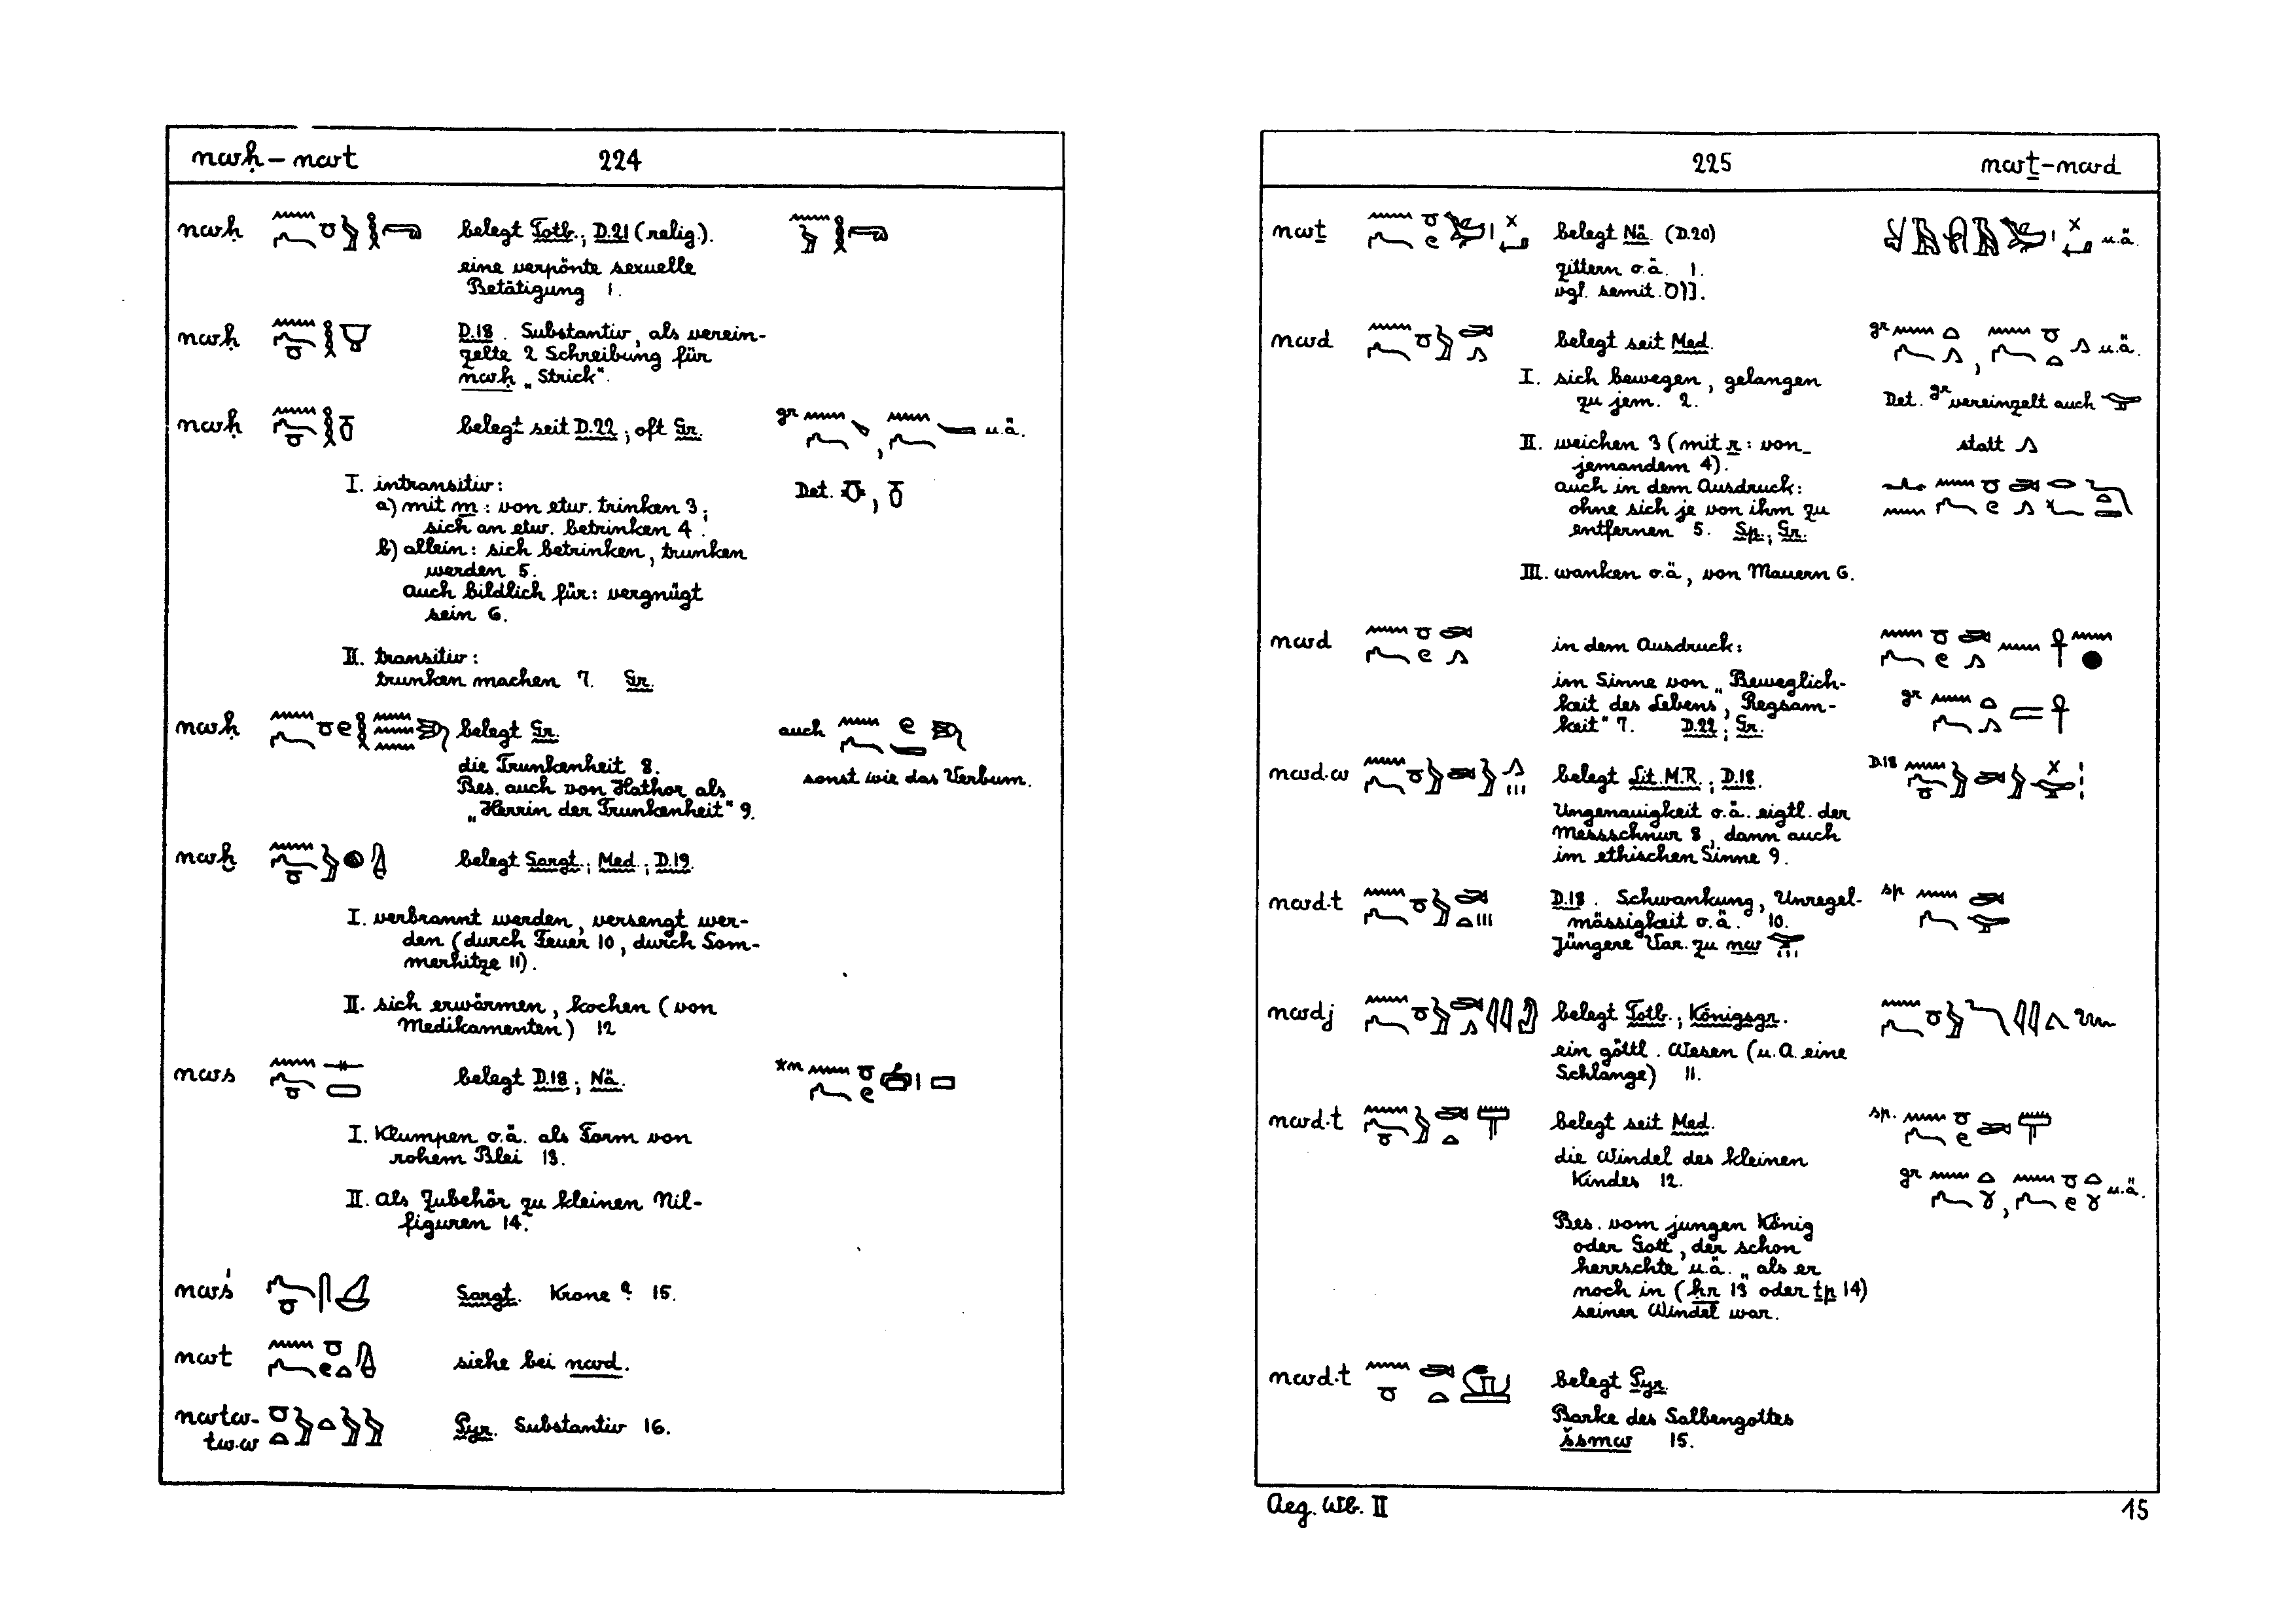 nwḥ – nwt 224
nwḥ belegt Totb.; D.21 (relig.).
eine verpönte sexuelle
Betätigung 1.
nwḥ D.18. Substantiv, als verein-
zelte 2 Schreibung für
nwḥ „Strick“.
nwḥ belegt seit D.22; oft Gr. gr , u.ä.
I. intransitiv: Det. ,
a) mit m: von etw. trinken 3;
sich an etw. betrinken 4.
b) allein: sich betrinken, trunken
werden 5.
Auch bildlich für: vergnügt
sein 6.
II. transitiv:
trunken machen 7. Gr.
nwḥ belegt Gr. auch
die Trunkenheit 8. sonst wie das Verbum.
Bes. auch von Hathor als
„Herrin der Trunkenheit“ 9.
nwḫ belegt Sargt.; Med.; D.19.
I. verbrannt werden, versengt wer-
den (durch Feuer 10, durch Som-
merhitze 11).
II. sich erwärmen, kochen (von
Medikamenten) 12
nws belegt D.18; Nä. *m
I. Klumpen o.ä. als Form von
rohem Blei 13.
II. Als Zubehör zu kleinen Nil-
figuren 14.
nwś Sargt. Krone? 15.
nwt siehe bei nwd.
nwtw-
tw.w Pyr. Substantiv 16.
225 nwṯ – nwd
nwṯ belegt Nä. (D.20) u.ä.
zittern o.ä. 1.
vgl. semit. נוט.
nwd belegt seit Med. gr , u.ä.
I. sich bewegen, gelangen
zu jem. 2. Det. gr vereinzelt auch
II. weichen 3 (mit r: von statt
jemandem 4).
auch in dem Ausdruck:
ohne sich je von ihm zu
entfernen 5. Sp.; Gr.
III. wanken o.ä., von Mauern 6.
nwd in dem Ausdruck:
im Sinne von „Beweglich-
keit des Lebens, Regsam- gr
keit“ 7. D.22; Gr.
nwd.w belegt Lit. M.R.; D.18. D.18
Ungenauigkeit o.ä. eigtl. der
Messschnur 8, dann auch
im ethischen Sinne 9.
nwd.t D.18. Schwankung, Unregel- sp
mässigkeit o.ä. 10.
Jüngere Var. zu nw
nwdj belegt Totb.; Königsgr.
ein göttl. Wesen (u.A. eine
Schlange) 11.
nwd.t belegt seit Med. sp.
die Windel des kleinen
Kindes 12. gr , u.ä.
Bes. vom jungen König
oder Gott, der schon
herrschte u.ä. „als er
noch in (ḥr 13 oder tp 14)
seiner Windel war.
nwd.t belegt Pyr.
Barke des Salbengottes
šsmw 15.
Aeg. Wb. II 15